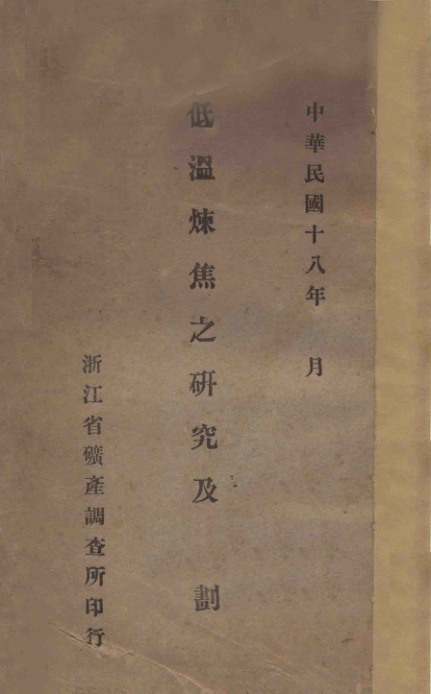 中華民國十八年 月
低溫煉焦之研究及 劃
浙江省礦產調查所印行